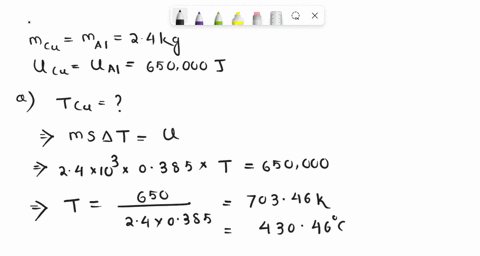 m_Cu = m_Al = 2.4 kg
U_Cu = U_Al = 650,000 J
a) T_Cu = ?
⇒ m s Δ T = U
⇒ 2.4 × 10³ × 0.385 × T = 650,000
⇒ T = 650 / 2.4 × 0.385 = 703.46 k
= 430.46°C